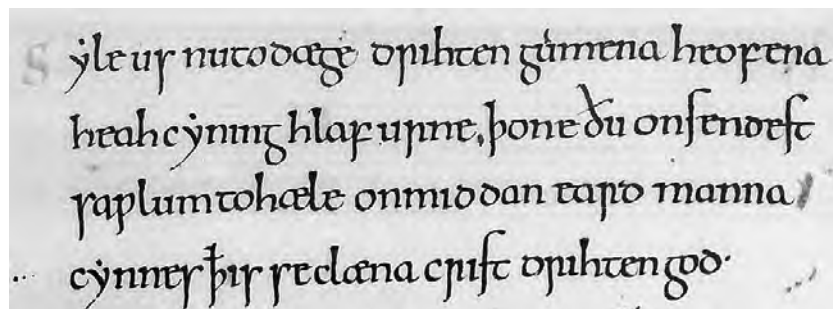 Sẏle us nu to dæge drihten gumena heofena
heah cẏning hlaf urne, þone ðu onsendest
sawlum to hæle on middan eard manna
cẏnnes ꝥ is se clæna crist drihten god·